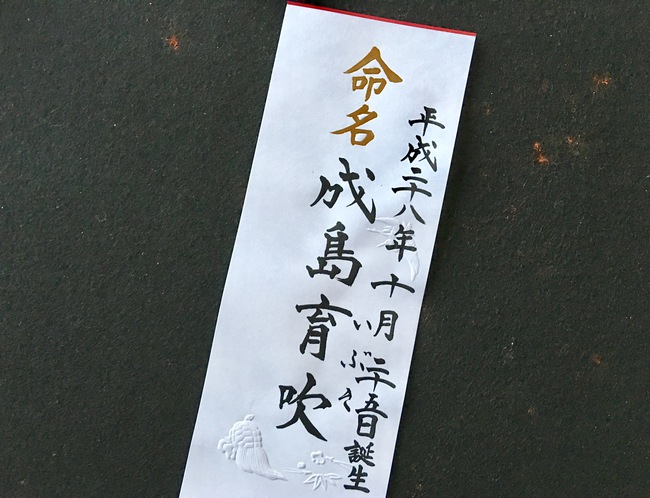 平成二十八年十月二十五日誕生
命名
成島育吹
いぶき